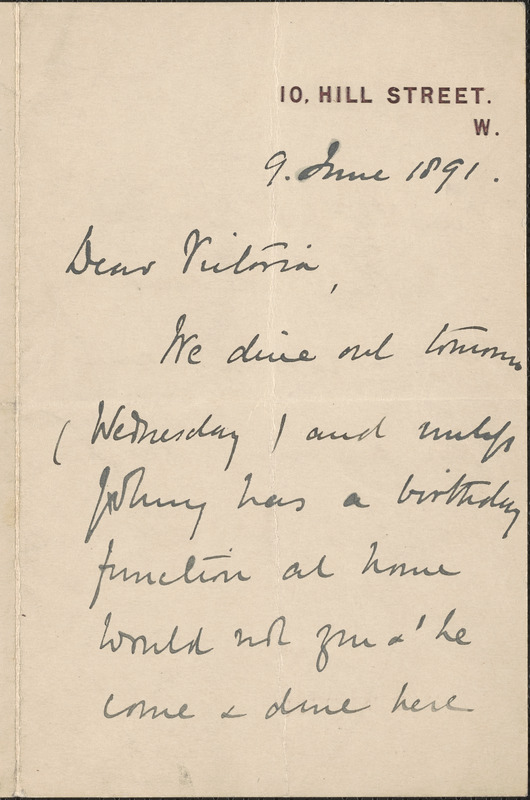 10, HILL STREET.
W.
9. June 1891.
Dear Victoria,
We dine out tomorrow
(Wednesday) and unless
Johnny has a birthday
function at home
would not you & he
come & dine here